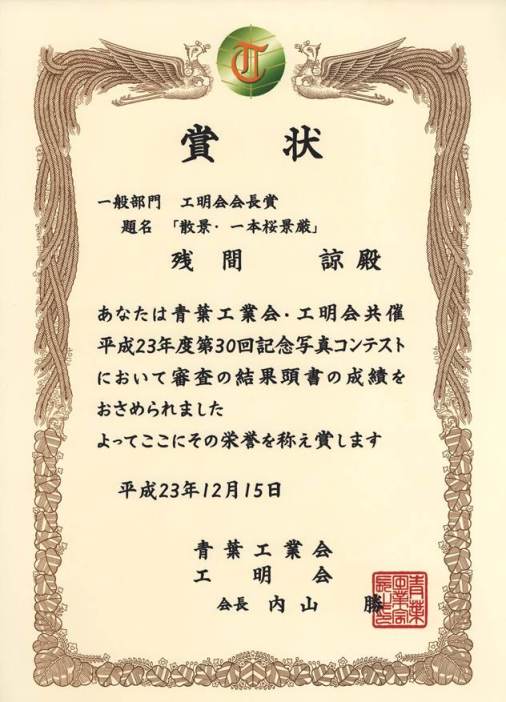 賞 状
一般部門 工明会会長賞
題名 「散景・一本桜景厳」
残間 諒殿
あなたは青葉工業会・工明会共催
平成23年度第30回記念写真コンテスト
において審査の結果頭書の成績を
おさめられました
よってここにその栄誉を称え賞します
平成23年12月15日
青葉工業会
工明会
会長 内山 勝